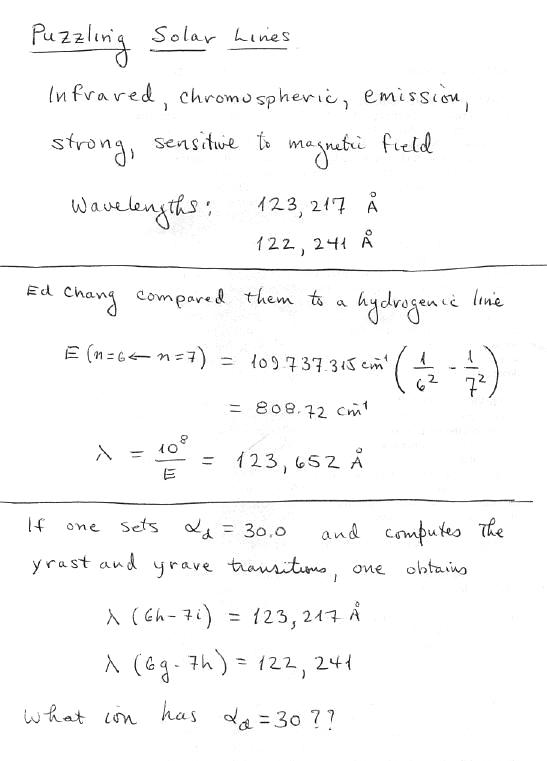 Puzzling Solar Lines
Infrared, chromospheric, emission,
strong, sensitive to magnetic field
Wavelengths: 123,217 Å
122,241 Å
Ed Chang compared them to a hydrogenic line
E (n=6 ← n=7) = 109.737.315 cm⁻¹ (1/6² - 1/7²)
= 808.72 cm⁻¹
λ = 10⁸/E = 123,652 Å
If one sets α_d = 30.0 and computes the
yrast and yrave transitions, one obtains
λ (6h-7i) = 123,217 Å
λ (6g-7h) = 122,241
What ion has α_d = 30 ??